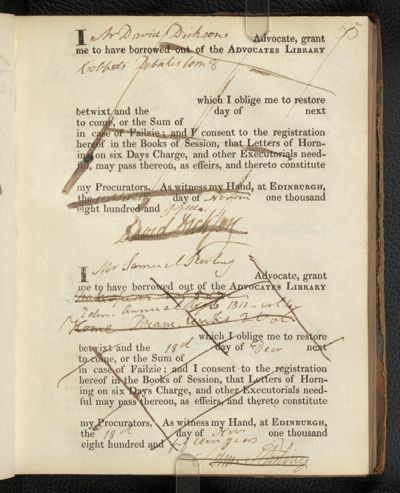 95
I Mr David Dickson Advocate, grant
me to have borrowed out of the ADVOCATES LIBRARY
Debates
which I oblige me to restore
betwixt and the day of next
to come, or the Sum of
in case of Failzie; and I consent to the registration
hereof in the Books of Session, that Letters of Horn-
ing on six Days Charge, and other Executorials need-
ful, may pass thereon, as effeirs, and thereto constitute
my Procurators. As witness my Hand, at EDINBURGH,
the day of one thousand
eight hundred and fifteen
David Dickson
I Mr Samuel Stirling Advocate, grant
me to have borrowed out of the ADVOCATES LIBRARY
Edinr Annual Reg 1811
Home works 2 vol
which I oblige me to restore
betwixt and the 18th day of Decr next
to come, or the Sum of
in case of Failzie; and I consent to the registration
hereof in the Books of Session, that Letters of Horn-
ing on six Days Charge, and other Executorials need-
ful may pass thereon, as effeirs, and thereto constitute
my Procurators. As witness my Hand, at EDINBURGH,
the 18th day of Novr one thousand
eight hundred and fifteen years
Stirling